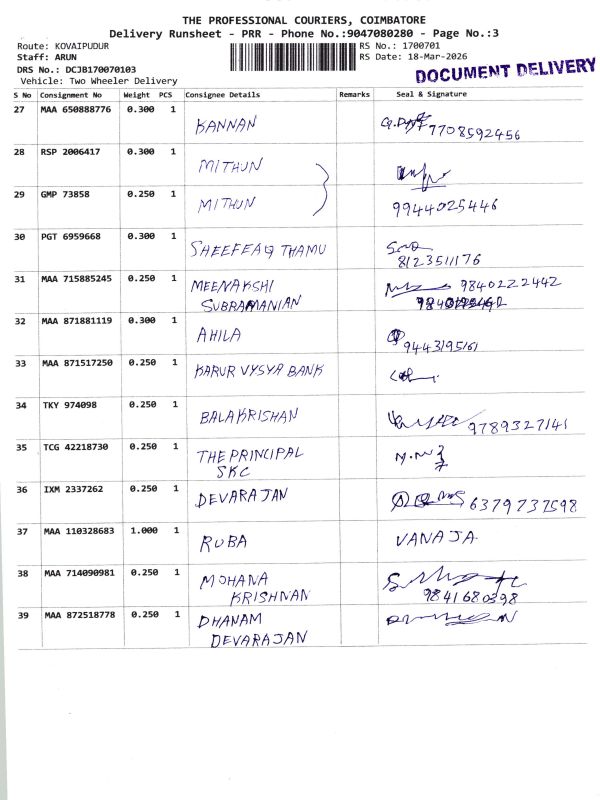 THE PROFESSIONAL COURIERS, COIMBATORE
Delivery Runsheet - PRR - Phone No.:9047080280 - Page No.:3
Route: KOVAIPUDUR
RS No.: 1700701
Staff: ARUN
RS Date: 18-Mar-2026
DRS No.: DCJB170070103
DOCUMENT DELIVERY
Vehicle: Two Wheeler Delivery
S No Consignment No Weight PCS Consignee Details Remarks Seal & Signature
27 MAA 650888776 0.300 1 KANNAN 7708592456
28 RSP 2006417 0.300 1 MITHUN
29 GMP 73858 0.250 1 MITHUN 9944025446
30 PGT 6959668 0.300 1 SHEEFEAQ THAMU
8123511176
31 MAA 715885245 0.250 1 MEENAKSHI 9840222442
SUBRAMANIAN
32 MAA 871881119 0.300 1 AHILA
9443195161
33 MAA 871517250 0.250 1 KARUR VYSYA BANK
34 TKY 974098 0.250 1 BALAKRISHAN 9789327141
35 TCG 42218730 0.250 1 THE PRINCIPAL
SKC
36 IXM 2337262 0.250 1 DEVARAJAN 6379737598
37 MAA 110328683 1.000 1 RUBA VANAJA.
38 MAA 714090981 0.250 1 MOHANA
KRISHNAN 9841680398
39 MAA 872518778 0.250 1 DHANAM
DEVARAJAN